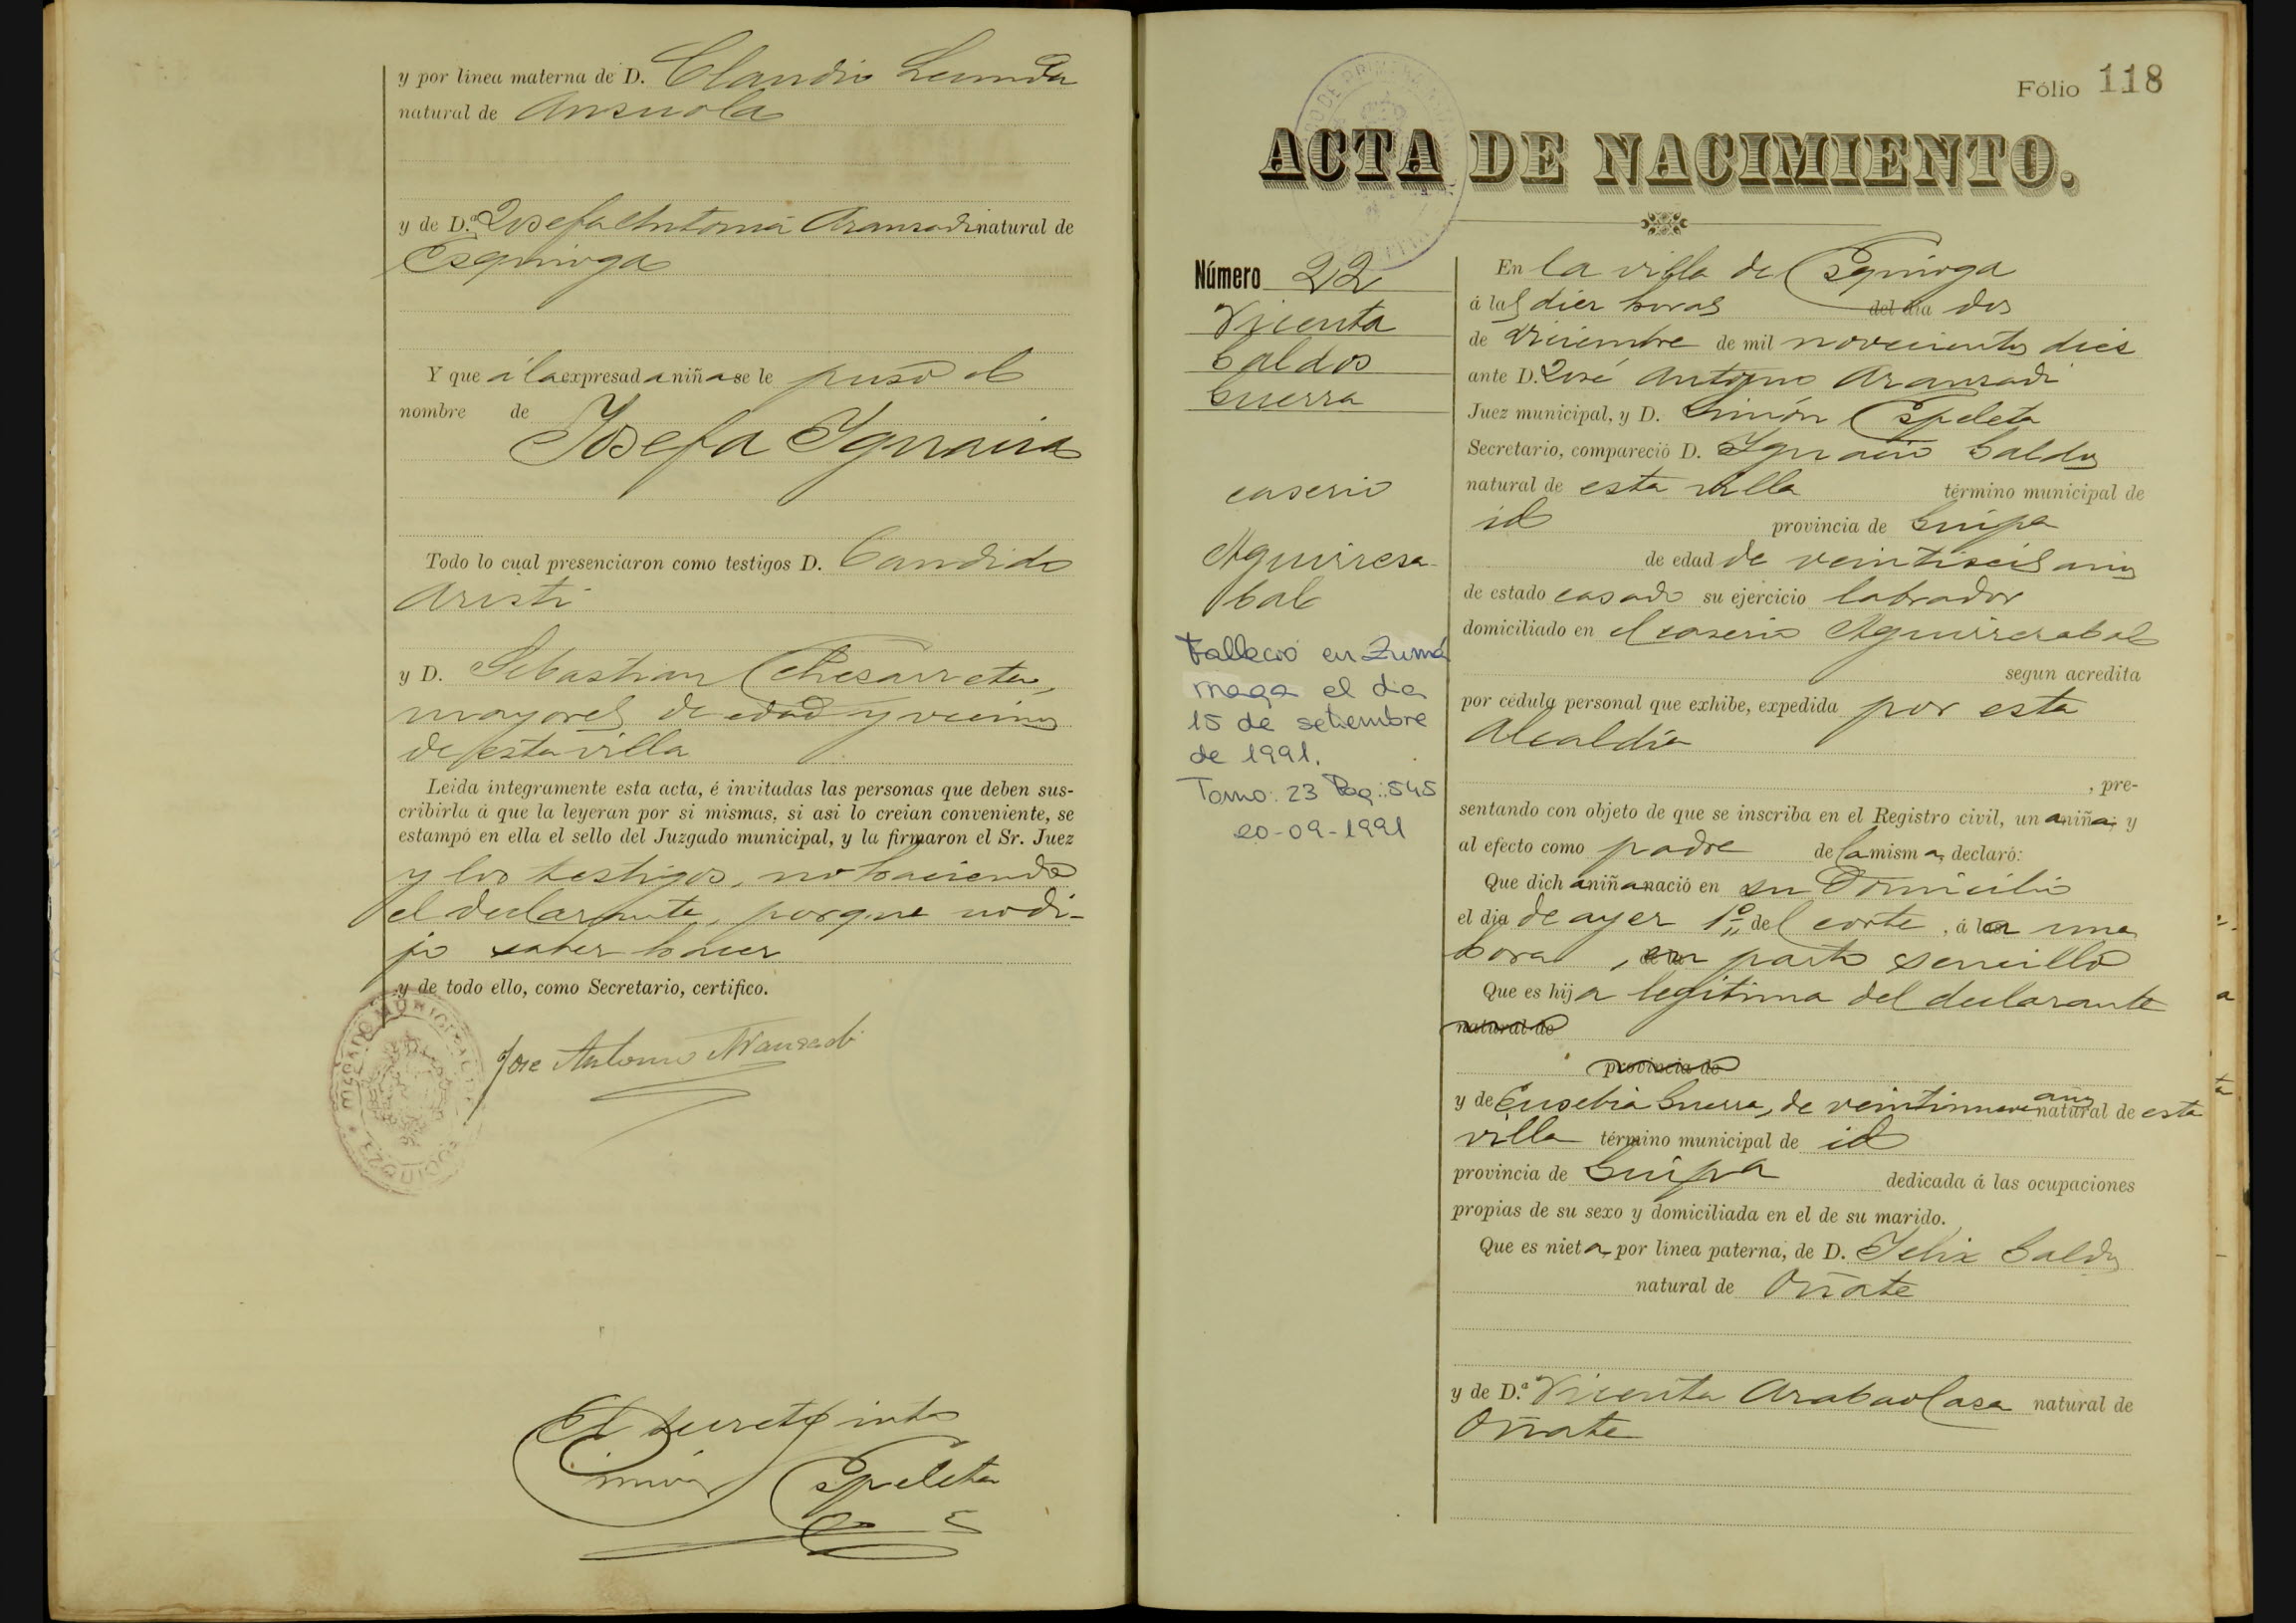 y por linea materna de D. Claudio Lecunda
natural de Ansuola
y de D.ª Josefa Antonia Aransadi natural de
Esquioga
Y que á la expresada niña se le puso el
nombre de
Josefa Ignacia
Todo lo cual presenciaron como testigos D. Candido
Aristi
y D. Sebastian Echesarreta,
mayores de edad y vecinos
de esta villa
Leida integramente esta acta, é invitadas las personas que deben sus-
cribirla á que la leyeran por si mismas, si asi lo creian conveniente, se
estampó en ella el sello del Juzgado municipal, y la firmaron el Sr. Juez
y los testigos, no haciendo
el declarante, porque no di-
jo saber hacer
y de todo ello, como Secretario, certifico.
Jose Antonio Aransadi
El Secret.º int.º
Simón Espeleta
Fólio 118
ACTA DE NACIMIENTO.
Número 22
Vicenta
Galdos
Guerra
caserio
Aguirresa-
bal
Falleció en Zumá
rraga el dia
15 de setiembre
de 1991.
Tomo: 23 Pag.: 545
20-09-1991
En la villa de Esquioga
á las diez horas del dia dos
de diciembre de mil novecientos diez
ante D. José Antonio Aransadi
Juez municipal, y D. Simón Espeleta
Secretario, compareció D. Ignacio Galdos
natural de esta villa término municipal de
id provincia de Guipa
de edad de veintiseis años
de estado casado su ejercicio labrador
domiciliado en el caserio Aguirresabal
segun acredita
por cédula personal que exhibe, expedida por esta
Alcaldía
, pre-
sentando con objeto de que se inscriba en el Registro civil, una niña; y
al efecto como padre de la misma, declaró:
Que dicha niña nació en su domicilio
el dia de ayer 1º del corte, á la una
hora, en parto sencillo
Que es hija legítima del declarante
natural de
provincia de
y de Eusebia Guerra, de veintinueve años natural de esta
villa término municipal de id
provincia de Guipa dedicada á las ocupaciones
propias de su sexo y domiciliada en el de su marido.
Que es nieta, por linea paterna, de D. Felix Galdos
natural de Oñate
y de D.ª Vicenta Arabaolasa natural de
Oñate